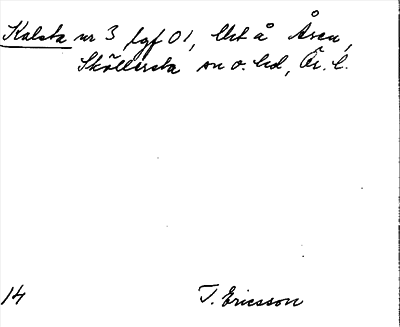 Kalsta nr 3 lgf 01, Utt å Åsen,
Sköllersta sn o. hd, Ör. l.
14 T. Ericsson